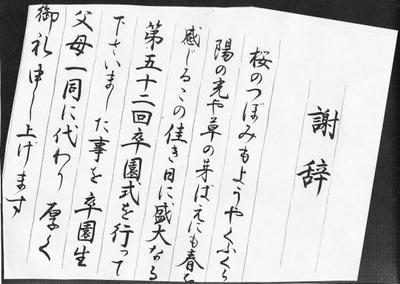 謝辞
桜のつぼみもようやくふくら
陽の光や草の芽ばえにも春を
感じるこの佳き日に盛大なる
第五十二回卒園式を行って
下さいました事を卒園生
父母一同に代わり厚く
御礼申し上げます